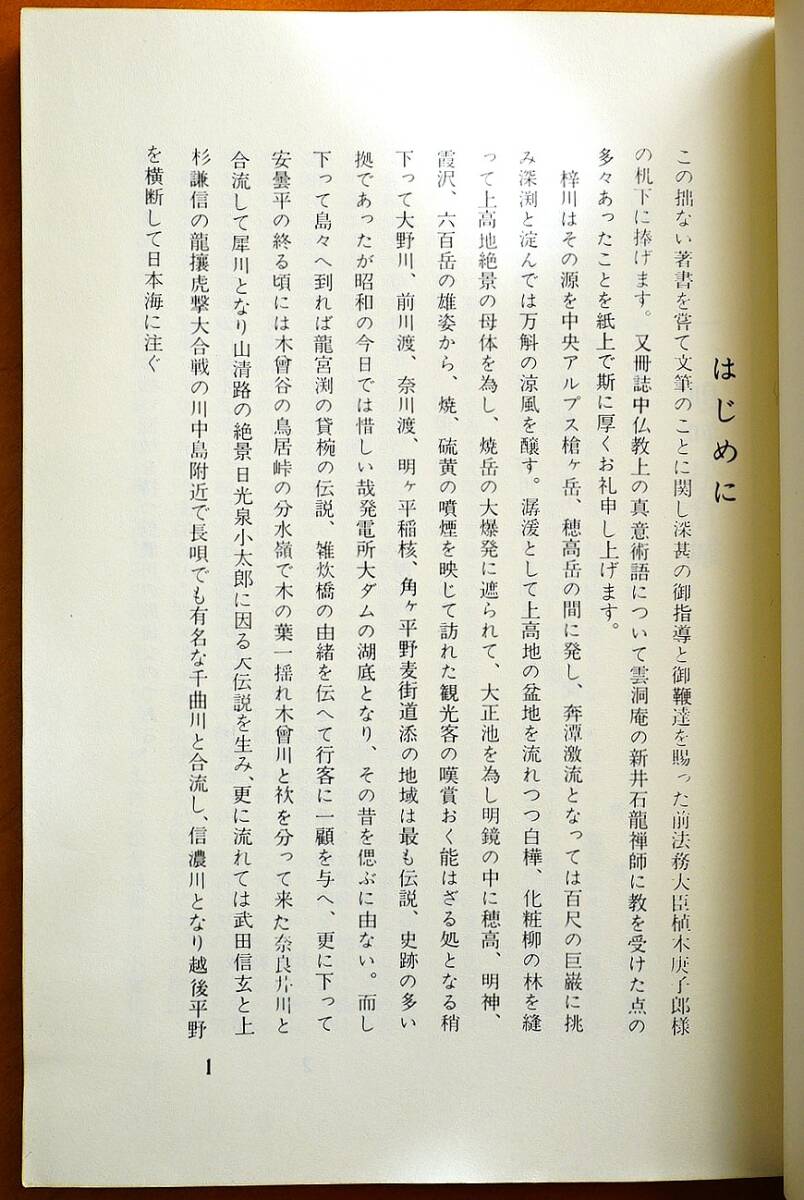 はじめに
この拙ない著書を嘗て文筆のことに関し深甚の御指導と御鞭達を賜った前法務大臣植木庚子郎様
の机下に捧げます。又冊誌中仏教上の真意術語について雲洞庵の新井石龍禅師に教を受けた点の
多々あったことを紙上で斯に厚くお礼申し上げます。
梓川はその源を中央アルプス槍ヶ岳、穂高岳の間に発し、奔潭激流となっては百尺の巨巌に挑
み深渕と淀んでは万斛の涼風を醸す。潺湲として上高地の盆地を流れつつ白樺、化粧柳の林を縫
って上高地絶景の母体を為し、焼岳の大爆発に遮られて、大正池を為し明鏡の中に穂高、明神、
霞沢、六百岳の雄姿から、焼、硫黄の噴煙を映じて訪れた観光客の嘆賞おく能はざる処となる稍
下って大野川、前川渡、奈川渡、明ヶ平稲核、角ヶ平野麦街道添の地域は最も伝説、史跡の多い
拠であったが昭和の今日では惜しい哉発電所大ダムの湖底となり、その昔を偲ぶに由ない。而し
下って島々へ到れば龍宮渕の貸椀の伝説、雑炊橋の由緒を伝へて行客に一顧を与へ、更に下って
安曇平の終る頃には木曾谷の鳥居峠の分水嶺で木の葉一揺れ木曾川と袂を分って来た奈良井川と
合流して犀川となり山清路の絶景日光泉小太郎に因る大伝説を生み、更に流れては武田信玄と上
杉謙信の龍攘虎撃大合戦の川中島附近で長唄でも有名な千曲川と合流し、信濃川となり越後平野
を横断して日本海に注ぐ
1